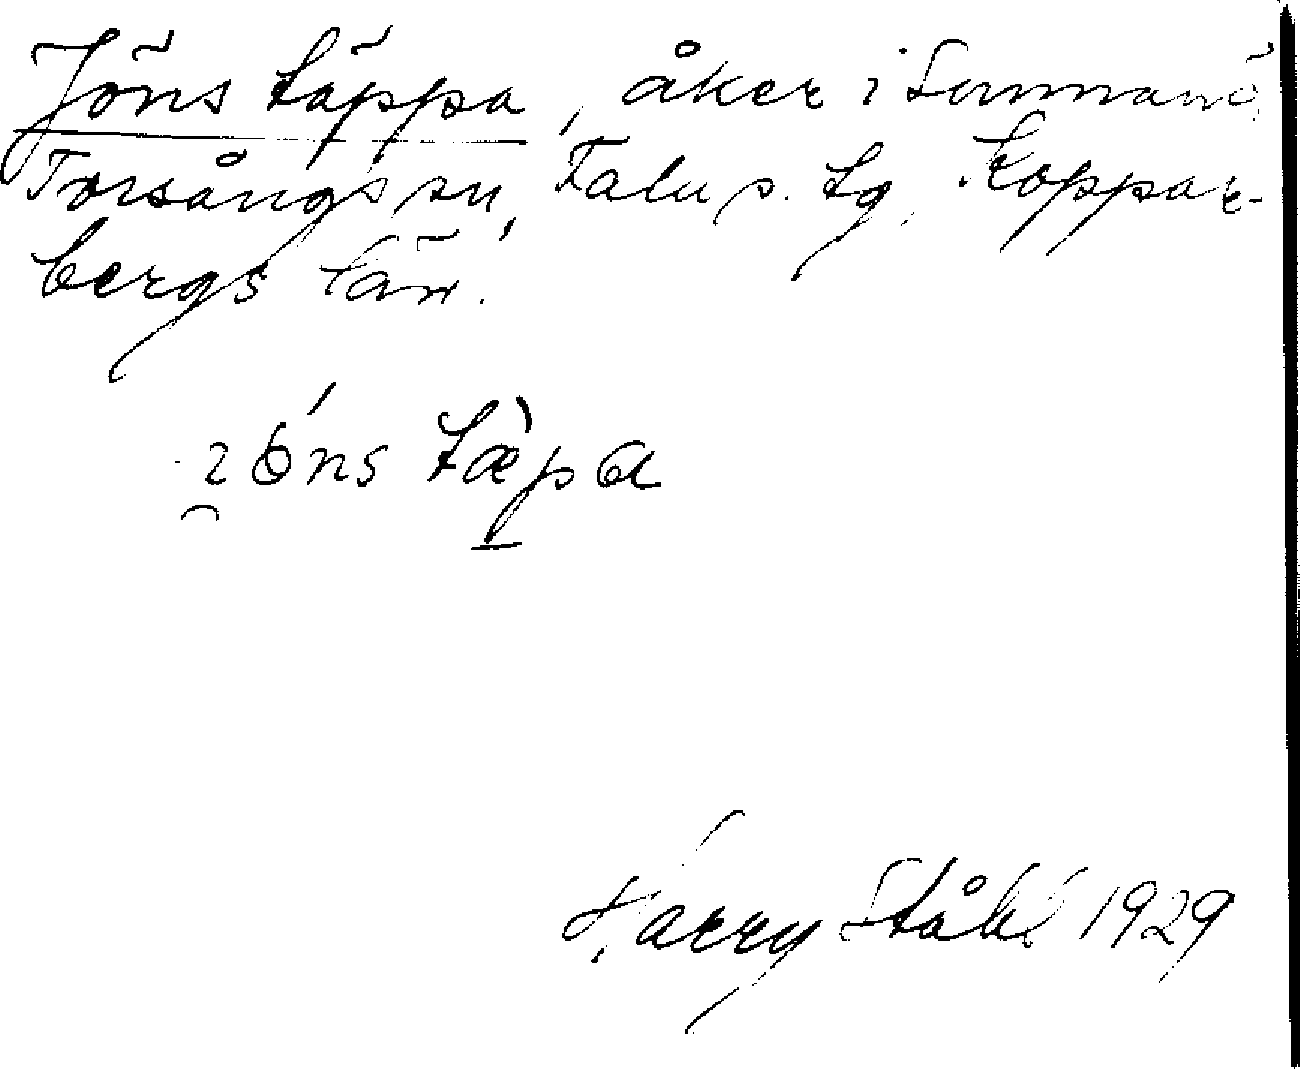 Jöns täppa, åker i Sunnanö,
Torsångs sn, Falu s. tg, Koppar-
bergs län.
i̯óns tæ̀p̲a
Harry Ståhl 1929